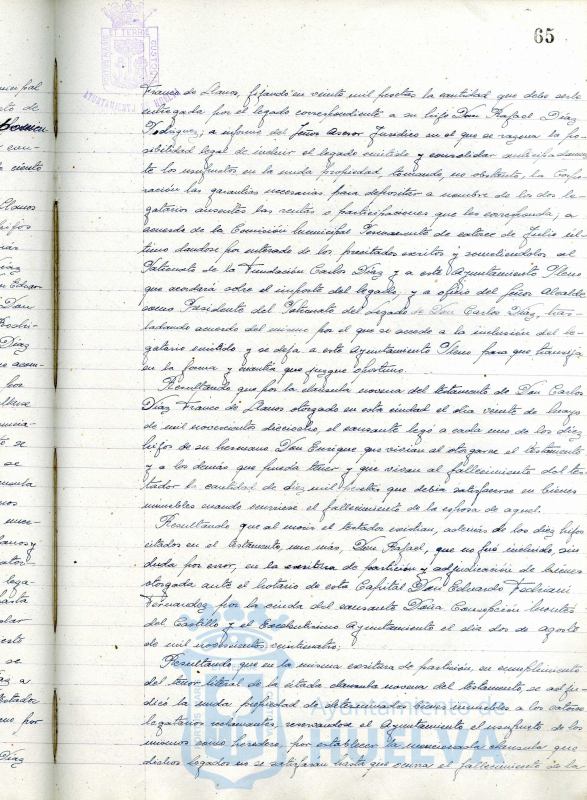 65
PORTUS MARIS ET TERRAE CUSTODIA
AYUNTAMIENTO DE HUELVA
Franco de Llanos, fijando en veinte mil pesetas la cantidad que debe serle
entregada por el legado correspondiente a su hijo Don Rafael Díaz
Rodríguez; a informe del Señor Asesor Jurídico en el que se razona la po-
sibilidad legal de incluir el legado omitido y consolidar anticipadamen-
te los usufructos en la nuda propiedad, tomando, no obstante, la Corpo-
ración las garantías necesarias para depositar a nombre de los dos le-
gatarios ausentes las rentas o participaciones que les corresponda; a
acuerdo de la Comisión Municipal Permanente de catorce de Julio úl-
timo dandose por enterado de los precitados escritos y sometiendolos al
Patronato de la Fundación Carlos Díaz y a este Ayuntamiento Pleno
que acordará sobre el importe del legado, y a oficio del Señor Alcalde
como Presidente del Patronato del Legado de Don Carlos Díaz, tras-
ladando acuerdo del mismo por el que se accede a la inclusión del le-
gatario omitido y se deja a este Ayuntamiento Pleno para que transija
en la forma y cuantía que juzgue oportuno.
Resultando que por la clausula novena del testamento de Don Carlos
Díaz Franco de Llanos otorgado en esta ciudad el día veinte de Mayo
de mil novecientos dieciocho, el causante legó a cada uno de los diez
hijos de su hermano Don Enrique que vivían al otorgarse el testamento
y a los demás que pueda tener y que vivan al fallecimiento del tes-
tador la cantidad de diez mil pesetas que debía satisfacerse en bienes
inmuebles cuando ocurriese el fallecimiento de la esposa de aquel.
Resultando que al morir el testador existían, además de los diez hijos
citados en el testamento, uno más, Don Rafael, que no fué incluido, sin
duda por error, en la escritura de partición y adjudicación de bienes
otorgada ante el Notario de esta Capital Don Eduardo
Fernandez por la viuda del causante Doña Concepción Montes
del Castillo y el Excelentísimo Ayuntamiento el día dos de agosto
de mil novecientos veinticuatro;
Resultando, que en la misma escritura de partición, en cumplimiento
del tenor literal de la citada clausula novena del testamento, se adju-
dicó la nuda propiedad de determinados bienes inmuebles a los catorce
legatarios reclamantes, reservandose el Ayuntamiento el usufructo de los
mismos como heredero, por establecer la mencionada clausula que
dichos legados no se satisfarán hasta que ocurra el fallecimiento de la
Ayuntamiento de
HUELVA